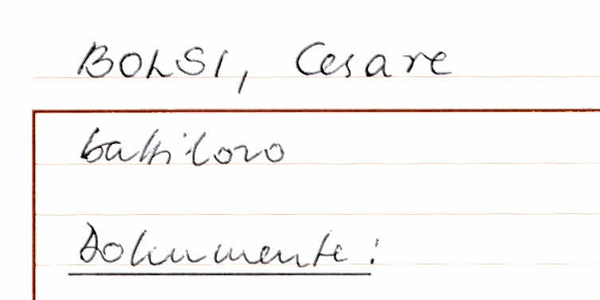 BOLSI, Cesare
battiloro
Dokumente: